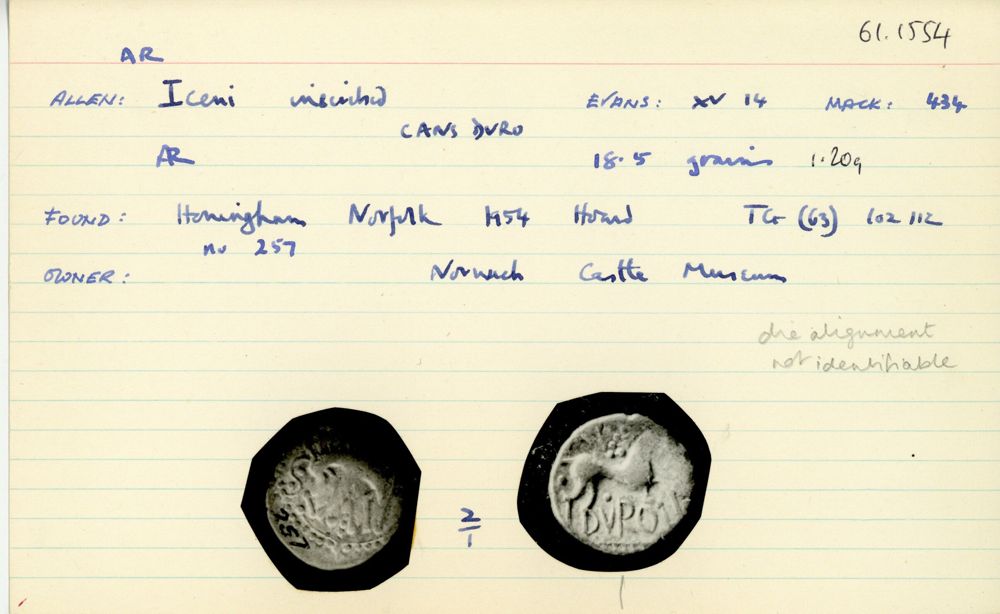 61.1554
AR
ALLEN: Iceni inscribed EVANS: XV 14 MACK: 434
CANS DVRO
AR 18.5 grains 1.20g
FOUND: Honingham Norfolk 1954 Hoard TG (63) 102 112
no 257
OWNER: Norwich Castle Museum
die alignment
not identifiable
257
2
1
DVRO